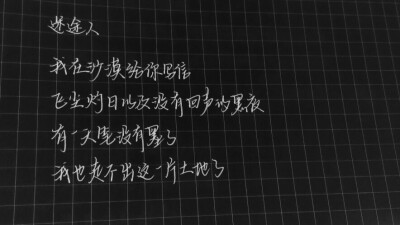 迷途人
我在沙漠给你写信
飞尘灼日以及没有回声的黑夜
有一天笔没有墨了
我也走不出这一片土地了